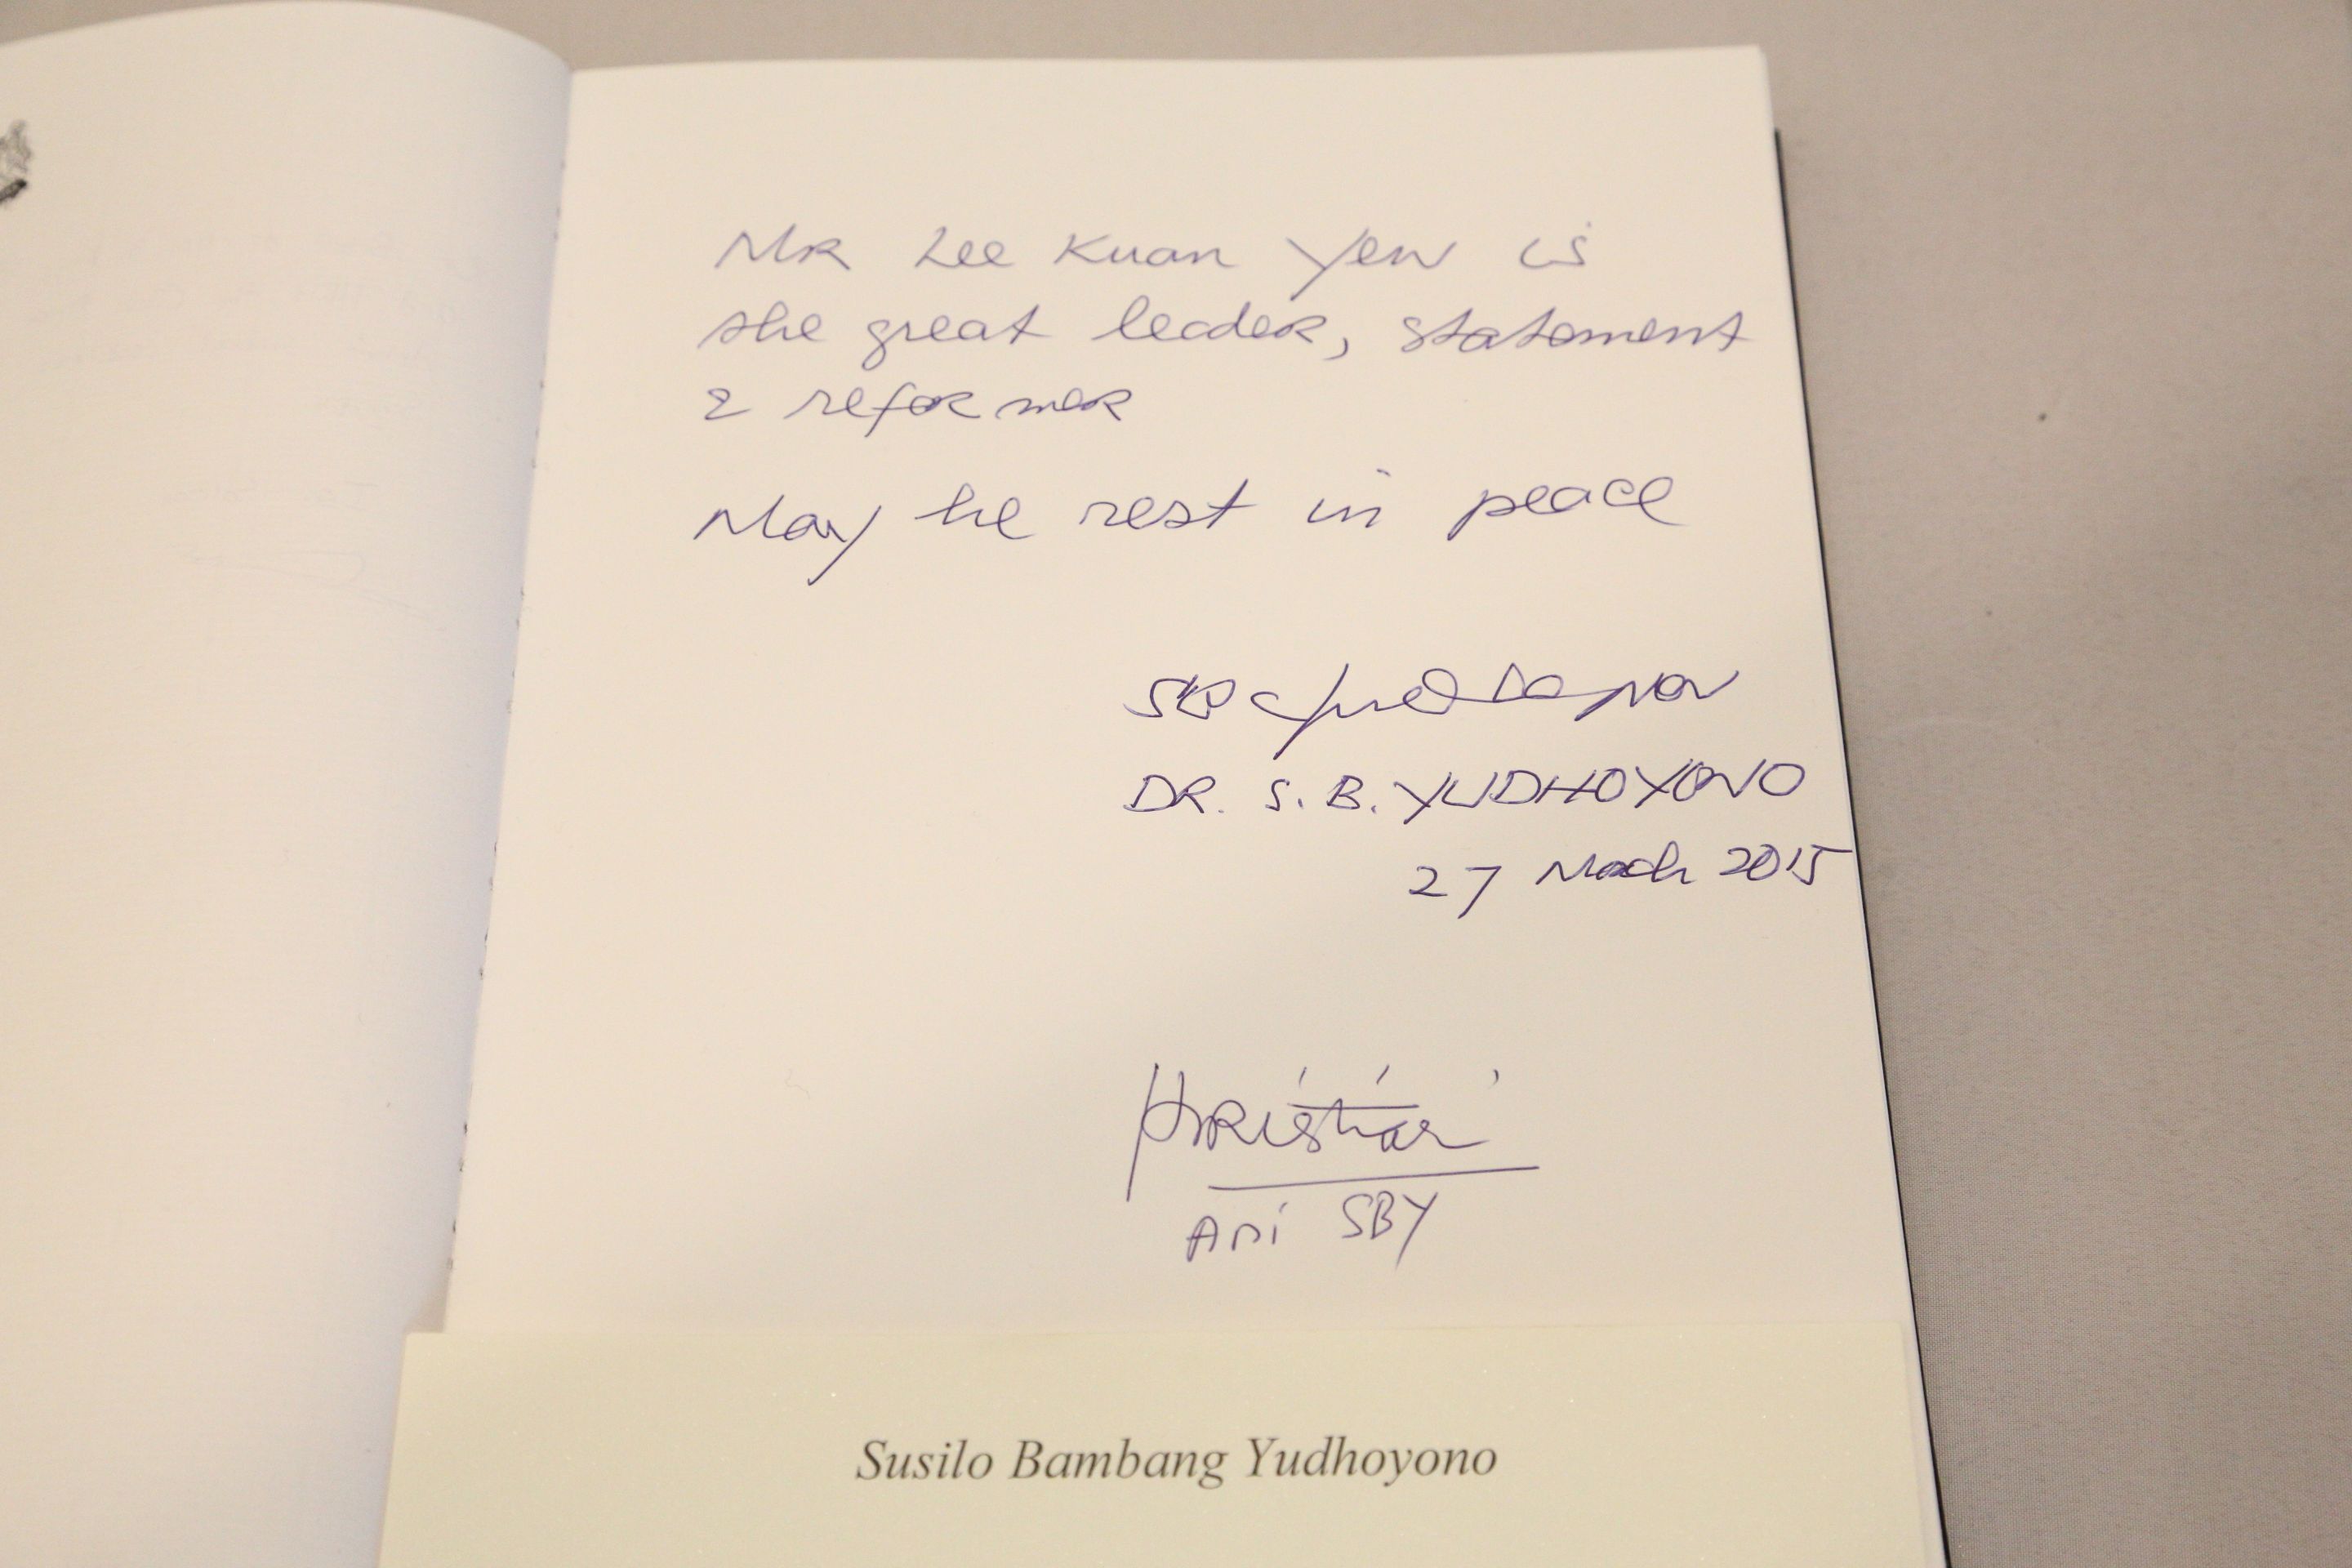 Mr Lee Kuan Yew is
the great leader, statement
& reformer
May he rest in peace
DR. S. B. YUDHOYONO
27 March 2015
Ani SBY
Susilo Bambang Yudhoyono